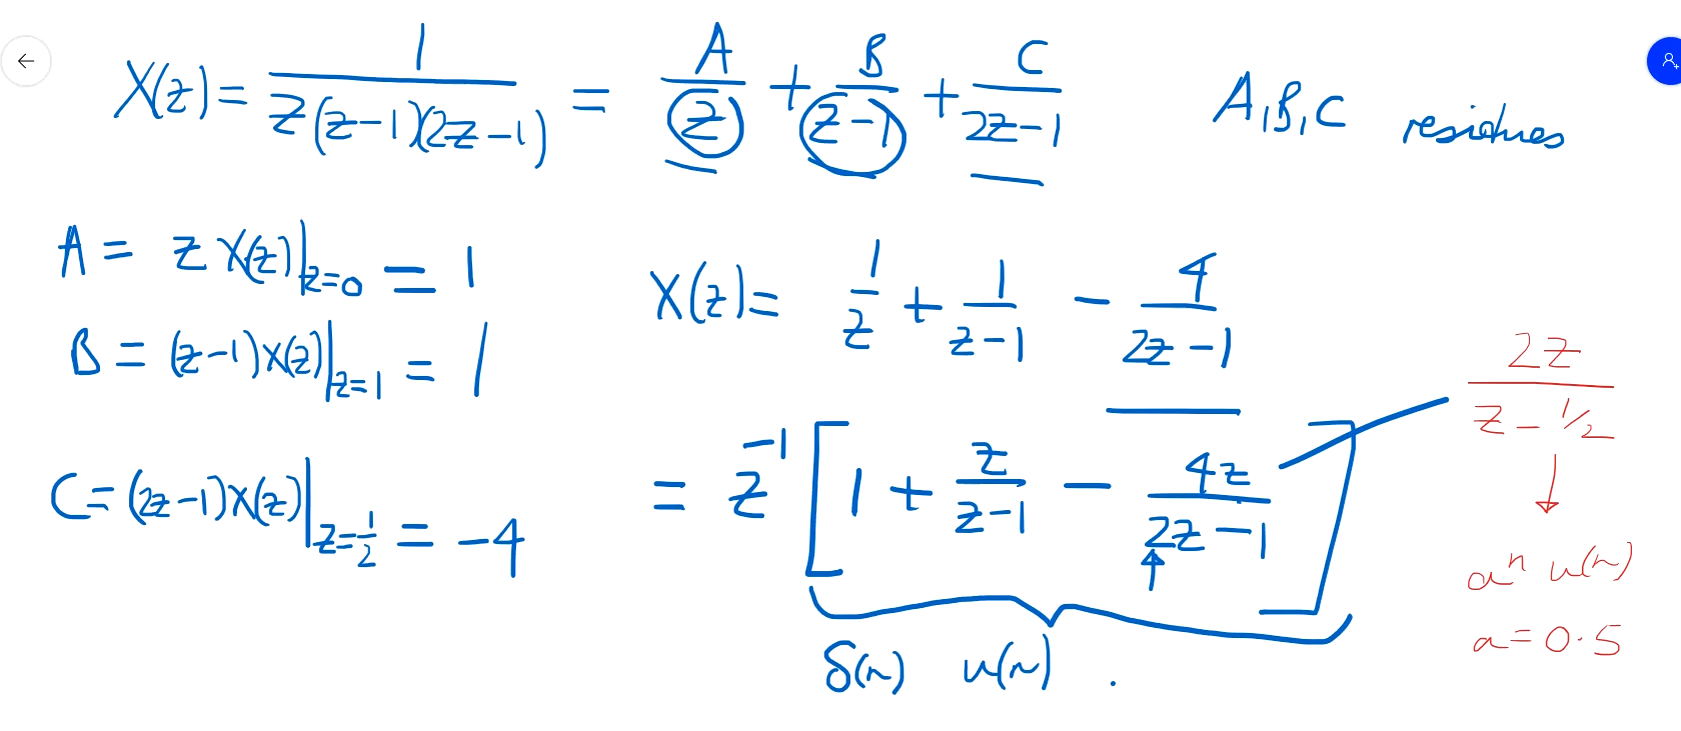 X(z) = 1 / z(z-1)(2z-1) = A/z + B/z-1 + C/2z-1   A, B, C residues
A = z X(z)|z=0 = 1
B = (z-1)X(z)|z=1 = 1
C = (2z-1)X(z)|z=1/2 = -4
X(z) = 1/z + 1/z-1 - 4/2z-1
= z^-1 [ 1 + z/z-1 - 4z/2z-1 ]
δ(n) u(n) .
2z / z - 1/2
↓
a^n u(n)
a = 0.5